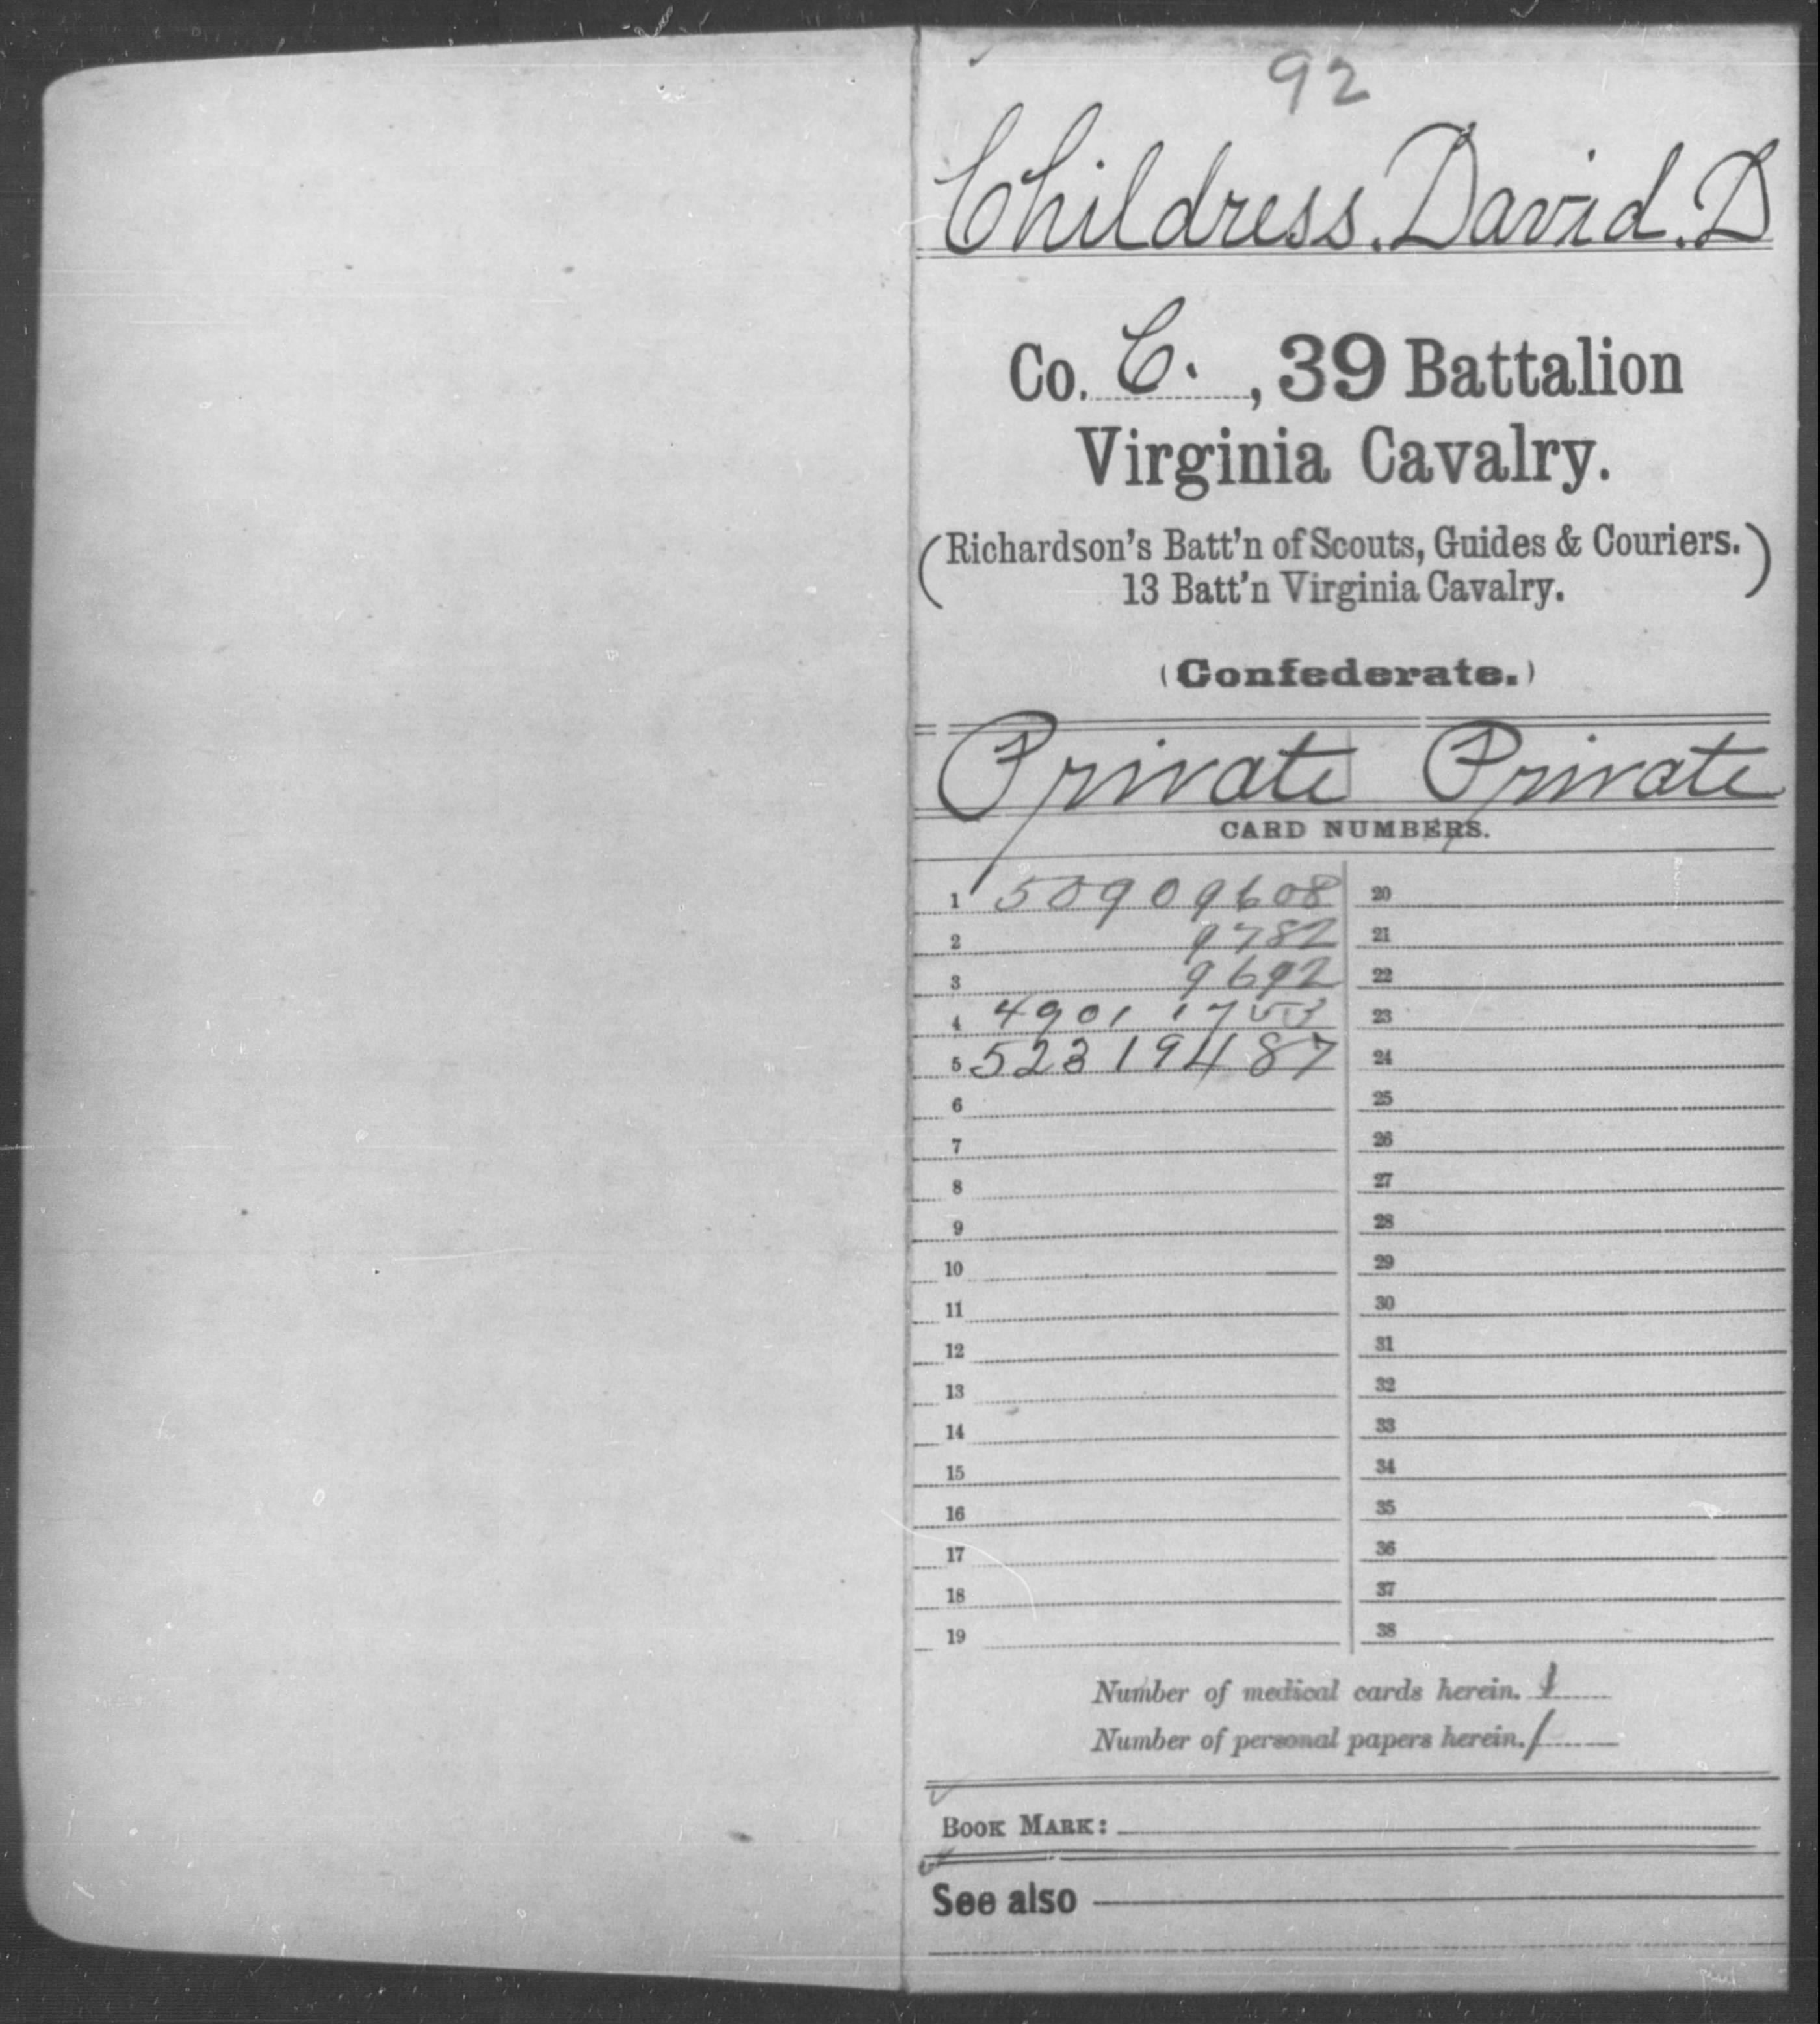 92
Childress. David. D
Co. C. , 39 Battalion
Virginia Cavalry.
(Richardson's Batt'n of Scouts, Guides & Couriers.
13 Batt'n Virginia Cavalry.)
(Confederate.)
Private Private
CARD NUMBERS.
1 50909608 20
2 9782 21
3 9692 22
4 23
5 52319487 24
6 25
7 26
8 27
9 28
10 29
11 30
12 31
13 32
14 33
15 34
16 35
17 36
18 37
19 38
Number of medical cards herein. 1
Number of personal papers herein. 1
BOOK MARK:
See also